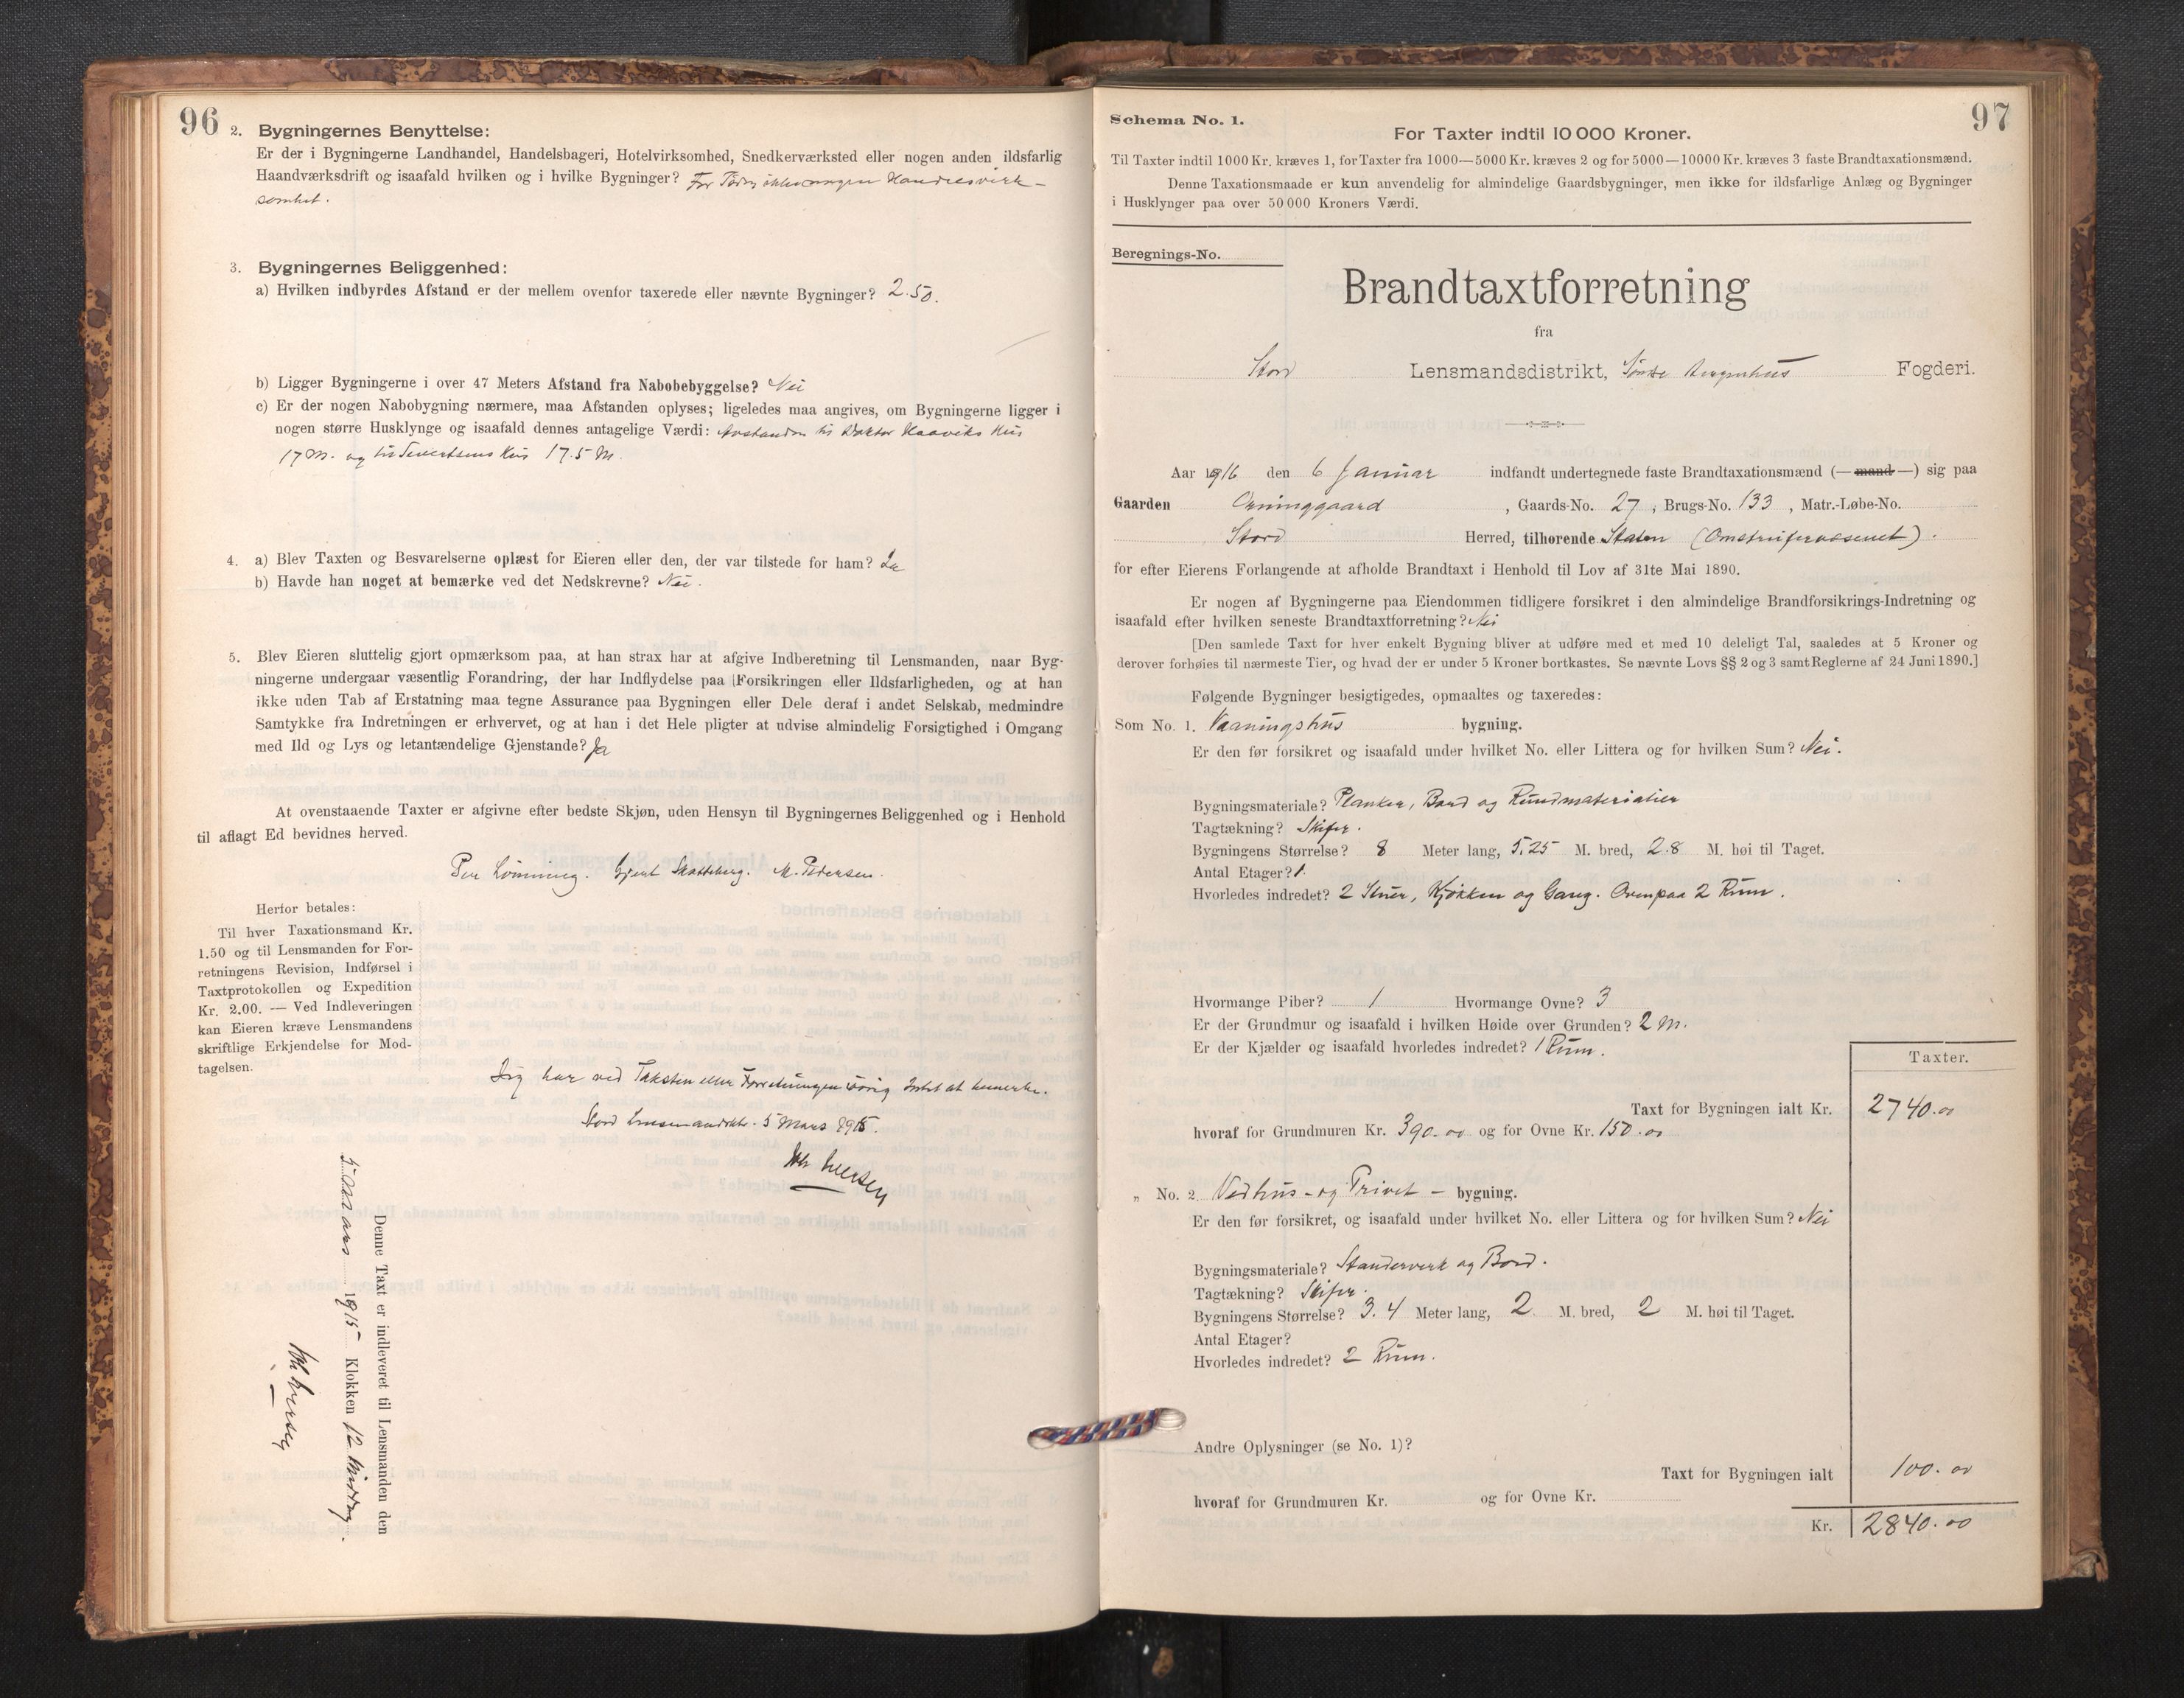 96
2. Bygningernes Benyttelse:
Er der i Bygningerne Landhandel, Handelsbageri, Hotelvirksomhed, Snedkerværksted eller nogen anden ildsfarlig
Haandværksdrift og isaafald hvilken og i hvilke Bygninger? For Tiden ikke nogen Handelsvirk-
somhet.
3. Bygningernes Beliggenhed:
a) Hvilken indbyrdes Afstand er der mellem ovenfor taxerede eller nævnte Bygninger? 2.50.
b) Ligger Bygningerne i over 47 Meters Afstand fra Nabobebyggelse? Nei
c) Er der nogen Nabobygning nærmere, maa Afstanden oplyses; ligeledes maa angives, om Bygningerne ligger i
nogen større Husklynge og isaafald dennes antagelige Værdi: Avstanden til Doktor Haaviks Hus
17 M. og til Sivertsens Hus 17.5 M.
4. a) Blev Taxten og Besvarelserne oplæst for Eieren eller den, der var tilstede for ham? Ja
b) Havde han noget at bemærke ved det Nedskrevne? Nei.
5. Blev Eieren sluttelig gjort opmærksom paa, at han strax har at afgive Indberetning til Lensmanden, naar Byg-
ningerne undergaar væsentlig Forandring, der har Indflydelse paa Forsikringen eller Ildsfarligheden, og at han
ikke uden Tab af Erstatning maa tegne Assurance paa Bygningen eller Dele deraf i andet Selskab, medmindre
Samtykke fra Indretningen er erhvervet, og at han i det Hele pligter at udvise almindelig Forsigtighed i Omgang
med Ild og Lys og letantændelige Gjenstande? Ja
At ovenstaaende Taxter er afgivne efter bedste Skjøn, uden Hensyn til Bygningernes Beliggenhed og i Henhold
til aflagt Ed bevidnes herved.
Per Lønning. Gjert Skatteberg. M. Pedersen.
Herfor betales:
Til hver Taxationsmand Kr.
1.50 og til Lensmanden for For-
retningens Revision, Indførsel i
Taxtprotokollen og Expedition
Kr. 2.00. — Ved Indleveringen
kan Eieren kræve Lensmandens
skriftlige Erkjendelse for Mod-
tagelsen.
Jeg har ved Taksten eller Forretningen øvrig Intet at bemerke.
Stord Lensmandsktr. 5 Mars 1915.
Iversen
Denne Taxt er indleveret til Lensmanden den
5 Mars 1915 Klokken 12 Middag.
Iversen
97
Schema No. 1.
For Taxter indtil 10 000 Kroner.
Til Taxter indtil 1000 Kr. kræves 1, for Taxter fra 1000—5000 Kr. kræves 2 og for 5000—10000 Kr. kræves 3 faste Brandtaxationsmænd.
Denne Taxationsmaade er kun anvendelig for almindelige Gaardsbygninger, men ikke for ildsfarlige Anlæg og Bygninger
i Husklynger paa over 50 000 Kroners Værdi.
Beregnings-No.
Brandtaxtforretning
fra
Stord Lensmandsdistrikt, Søndre Bergenhus Fogderi.
Aar 1916 den 6 Januar indfandt undertegnede faste Brandtaxationsmænd (—mand—) sig paa
Gaarden Orninggaard, Gaards-No. 27, Brugs-No. 133, Matr.-Løbe-No.
Stord Herred, tilhørende Staten (Omstreifervæsenet).
for efter Eierens Forlangende at afholde Brandtaxt i Henhold til Lov af 31te Mai 1890.
Er nogen af Bygningerne paa Eiendommen tidligere forsikret i den almindelige Brandforsikrings-Indretning og
isaafald efter hvilken seneste Brandtaxtforretning? Nei
[Den samlede Taxt for hver enkelt Bygning bliver at udføre med et med 10 deleligt Tal, saaledes at 5 Kroner og
derover forhøies til nærmeste Tier, og hvad der er under 5 Kroner bortkastes. Se nævnte Lovs §§ 2 og 3 samt Reglerne af 24 Juni 1890.]
Følgende Bygninger besigtigedes, opmaaltes og taxeredes:
Som No. 1. Vaaningshus bygning.
Er den før forsikret og isaafald under hvilket No. eller Littera og for hvilken Sum? Nei.
Bygningsmateriale? Planker, Bord og Rundmaterialier
Tagtækning? Skifer.
Bygningens Størrelse? 8 Meter lang, 5.25 M. bred, 2.8 M. høi til Taget.
Antal Etager? 1
Hvorledes indredet? 2 Stuer, Kjøkken og Gang. Ovenpaa 2 Rum.
Hvormange Piber? 1 Hvormange Ovne? 3
Er der Grundmur og isaafald i hvilken Høide over Grunden? 2 M.
Er der Kjælder og isaafald hvorledes indredet? 1 Rum.
Taxter.
Taxt for Bygningen ialt Kr. 2740.00
hvoraf for Grundmuren Kr. 390.00 og for Ovne Kr. 150.00
„ No. 2. Vedhus- og Privet- bygning.
Er den før forsikret, og isaafald under hvilket No. eller Littera og for hvilken Sum? Nei
Bygningsmateriale? Standerverk og Bord.
Tagtækning? Skifer.
Bygningens Størrelse? 3.4 Meter lang, 2 M. bred, 2 M. høi til Taget.
Antal Etager?
Hvorledes indredet? 2 Rum.
Andre Oplysninger (se No. 1)?
Taxt for Bygningen ialt 100.00
hvoraf for Grundmuren Kr. og for Ovne Kr.
Kr. 2840.00